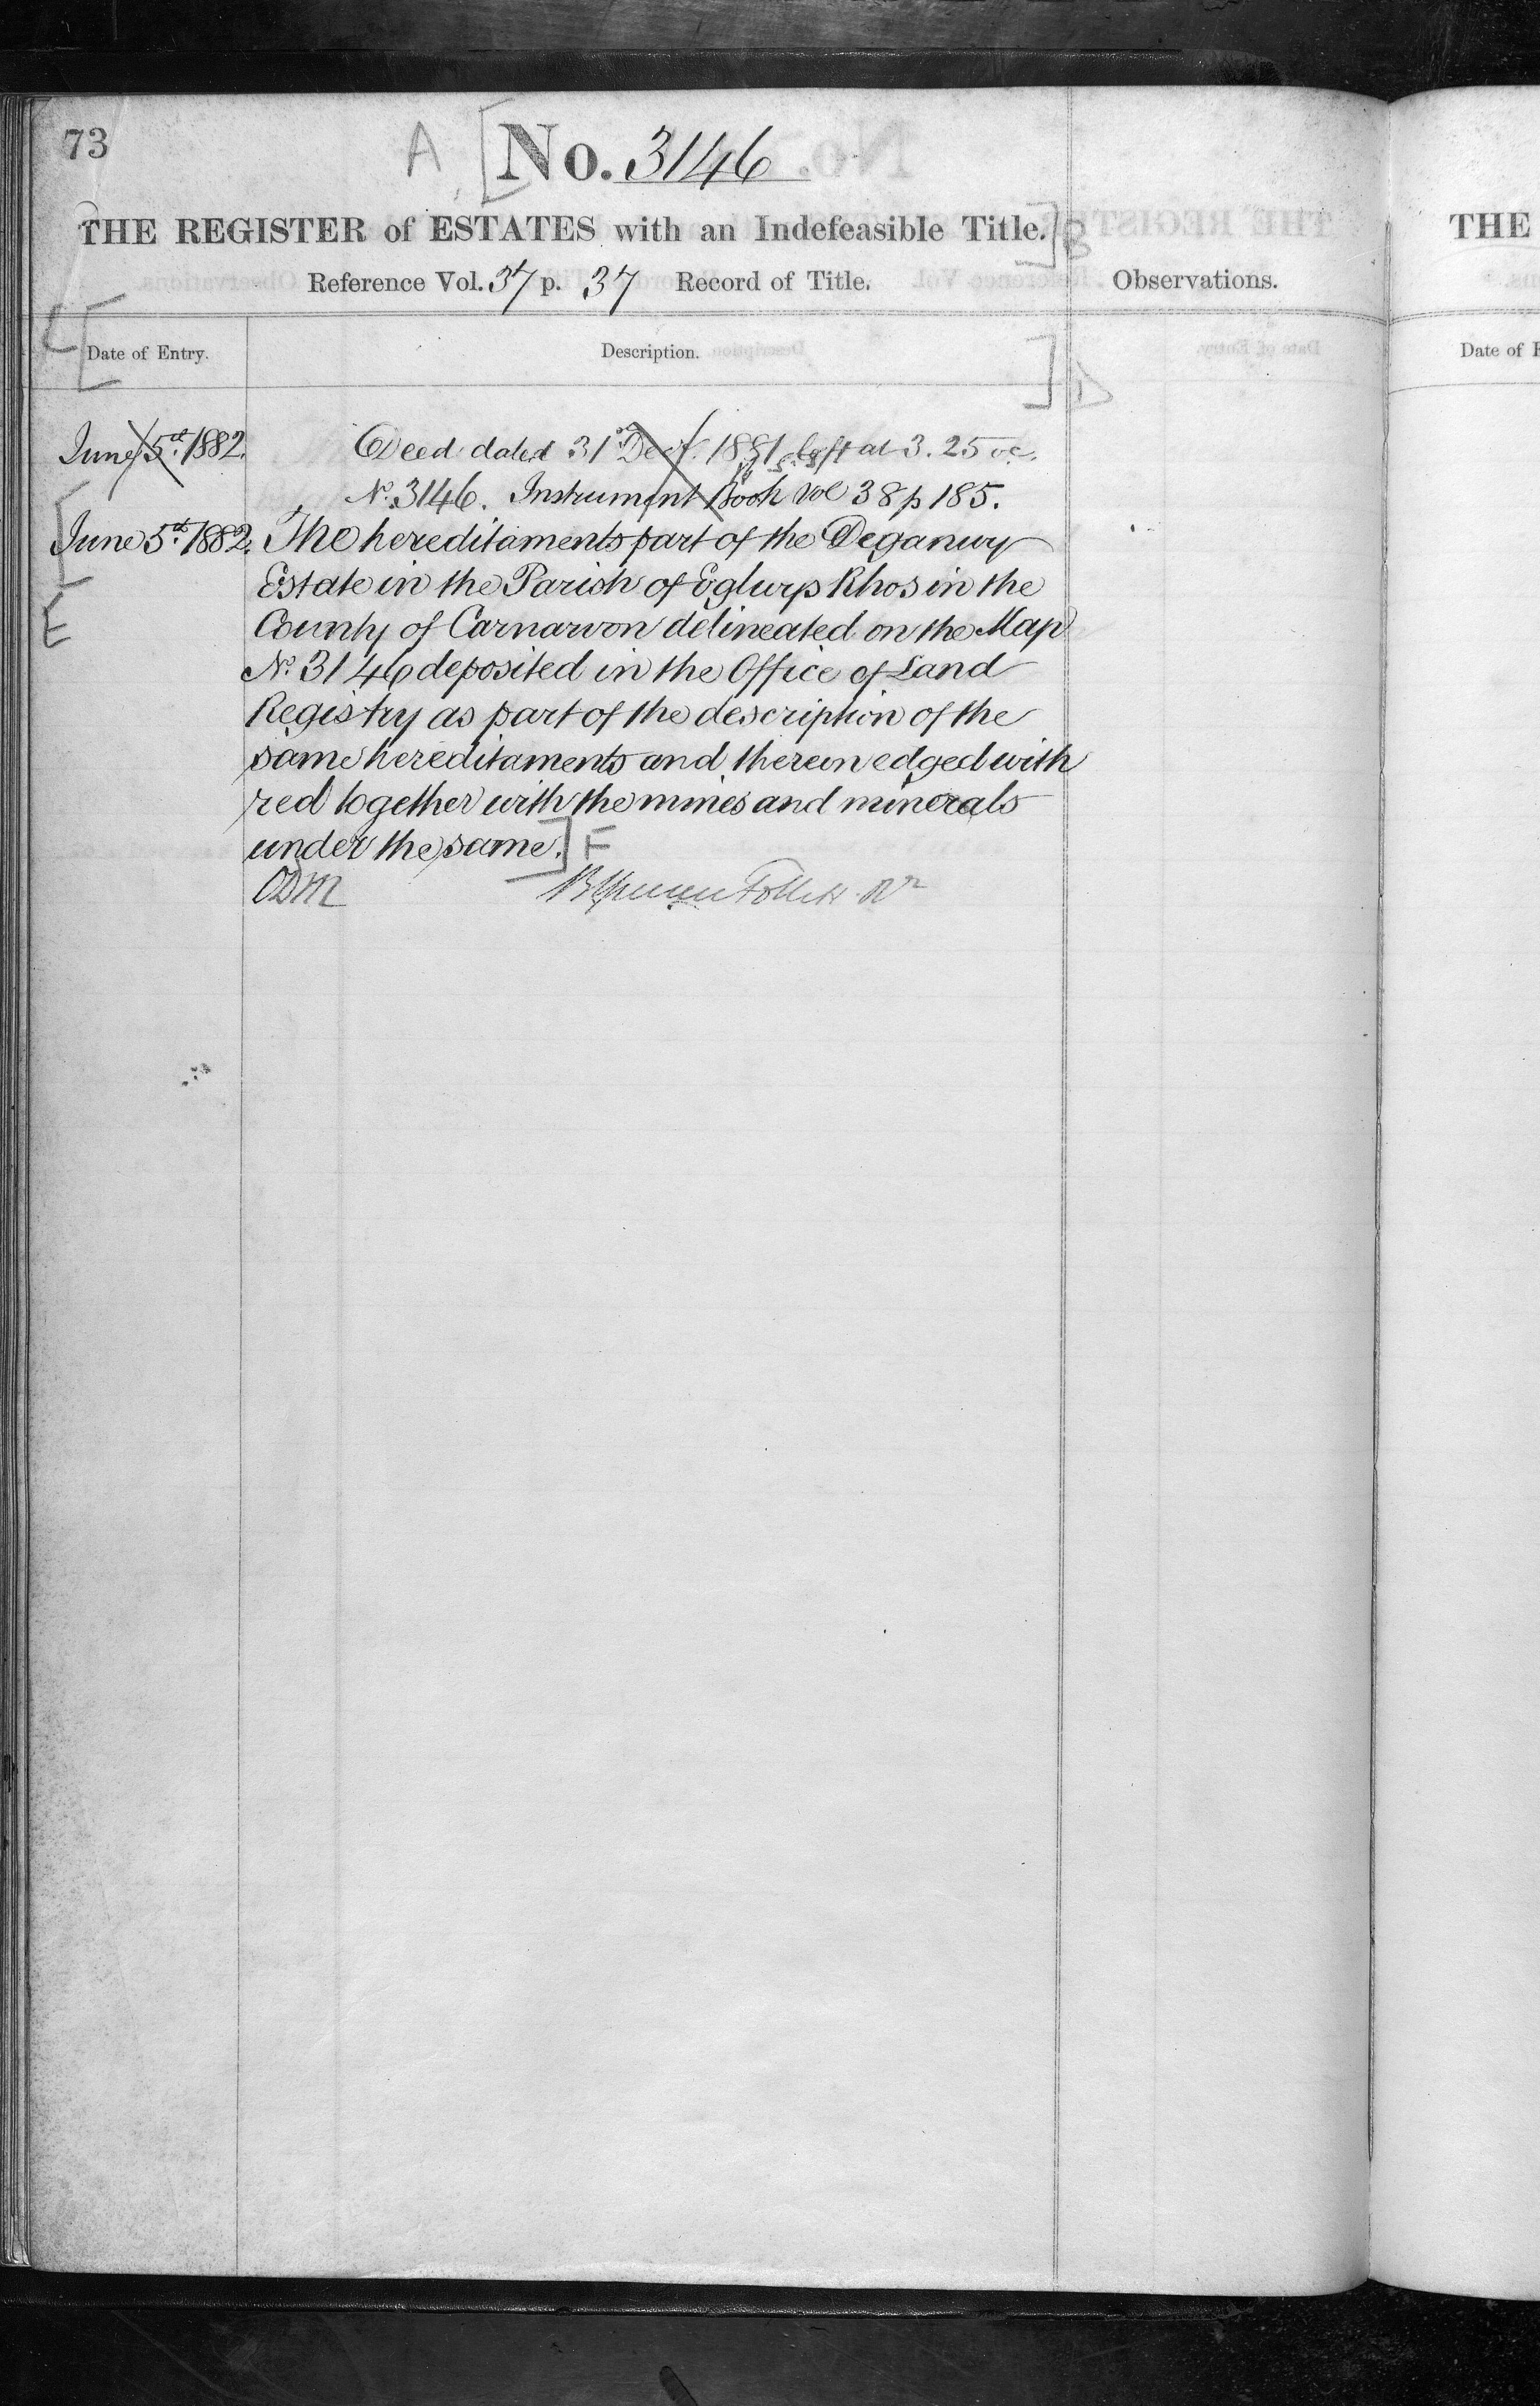 73
A [No. 3146
THE REGISTER of ESTATES with an Indefeasible Title.] B
Reference Vol. 37 p. 37 Record of Title.
Observations.
C [Date of Entry.
Description.] D
June 5th 1882.
Deed dated 31st Dec. 1881 left at 3.25
No. 3146. Instrument Book vol 38 p 185.
[June 5th 1882. The hereditaments part of the Deganwy
E
Estate in the Parish of Eglwys Rhos in the
County of Carnarvon delineated on the Map
No. 3146 deposited in the Office of Land
Registry as part of the description of the
same hereditaments and therein edged with
red together with the mines and minerals
under the same.] F
Follett
THE
Date of